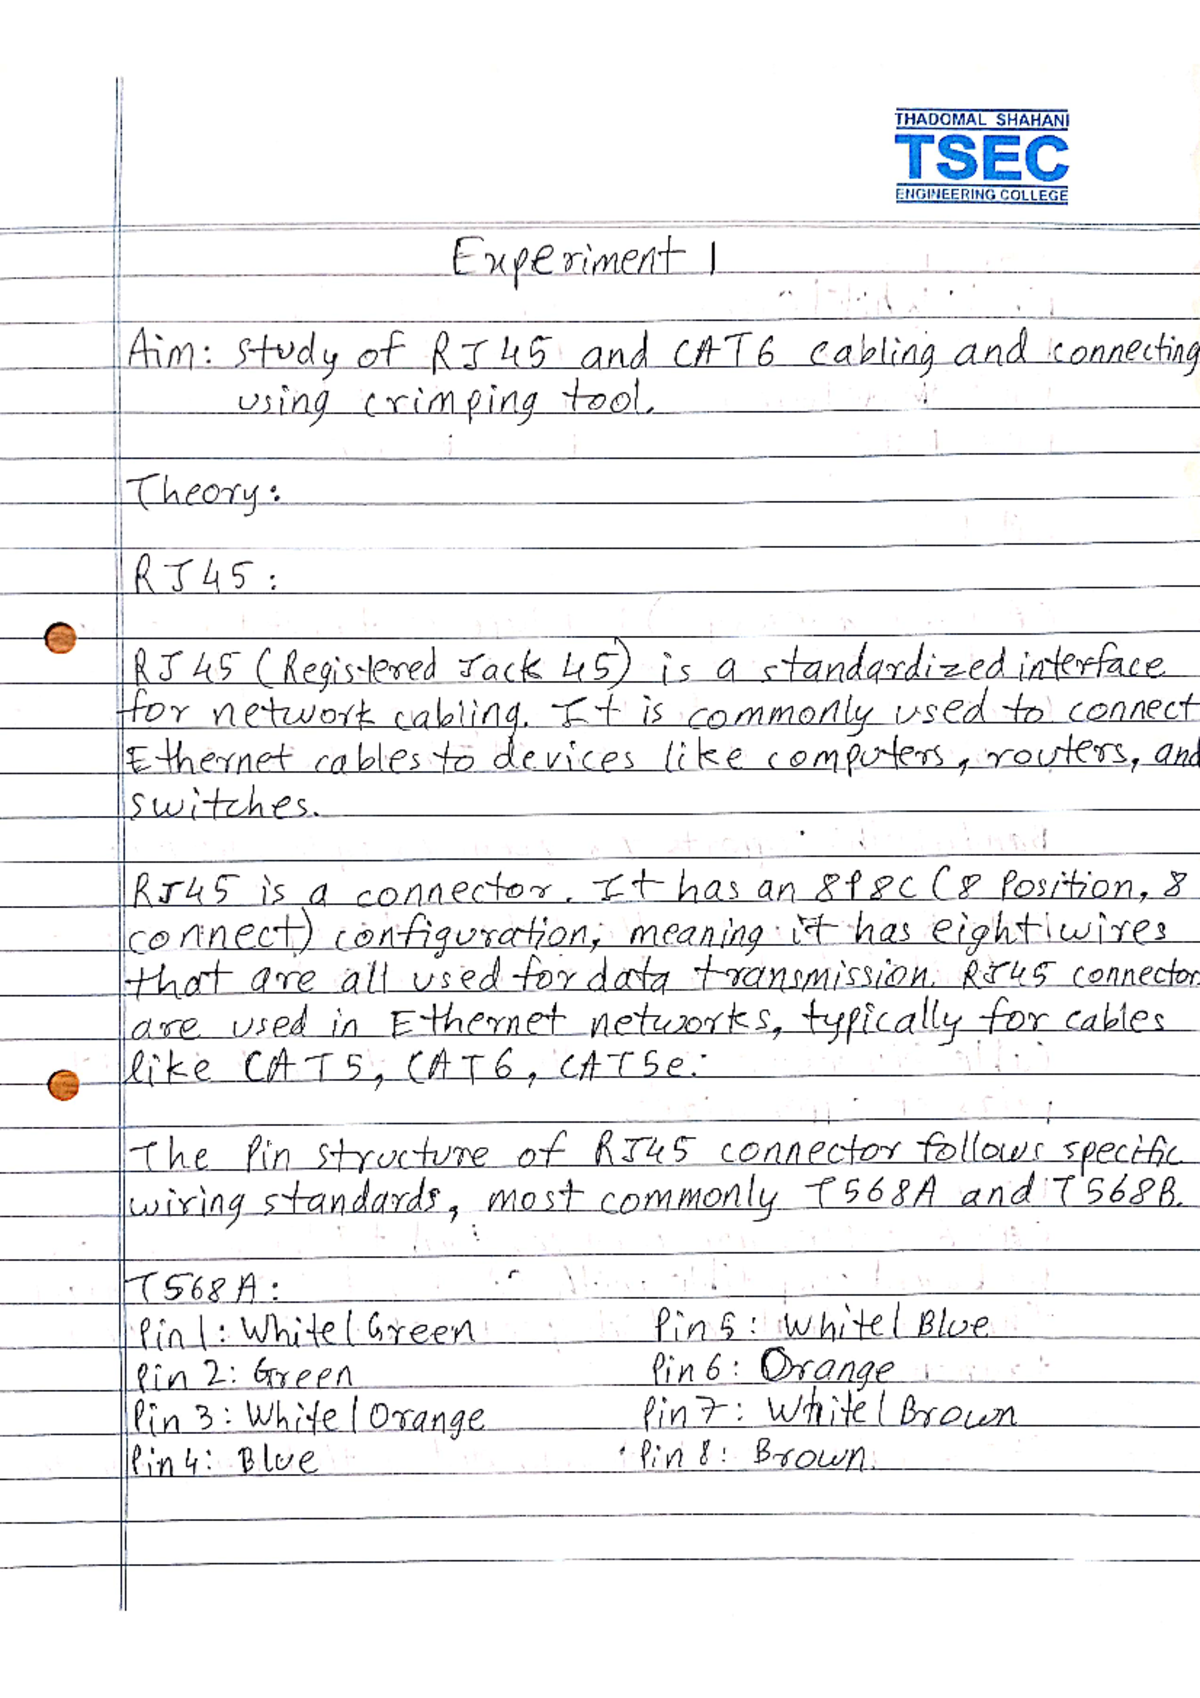 THADOMAL SHAHANI
TSEC
ENGINEERING COLLEGE
Experiment 1
Aim: study of RJ45 and CAT6 cabling and connecting
using crimping tool.
Theory:
RJ45:
RJ45 (Registered Jack 45) is a standardized interface
for network cabling. It is commonly used to connect
Ethernet cables to devices like computers, routers, and
switches.
RJ45 is a connector. It has an 8P8C (8 Position, 8
connect) configuration, meaning it has eight wires
that are all used for data transmission. RJ45 connectors
are used in Ethernet networks, typically for cables
like CAT5, CAT6, CAT5e.
The Pin structure of RJ45 connector follows specific
wiring standards, most commonly T568A and T568B.
T568A:
Pin 1: White/Green Pin 5: White/Blue
Pin 2: Green Pin 6: Orange
Pin 3: White/Orange Pin 7: White/Brown
Pin 4: Blue Pin 8: Brown.